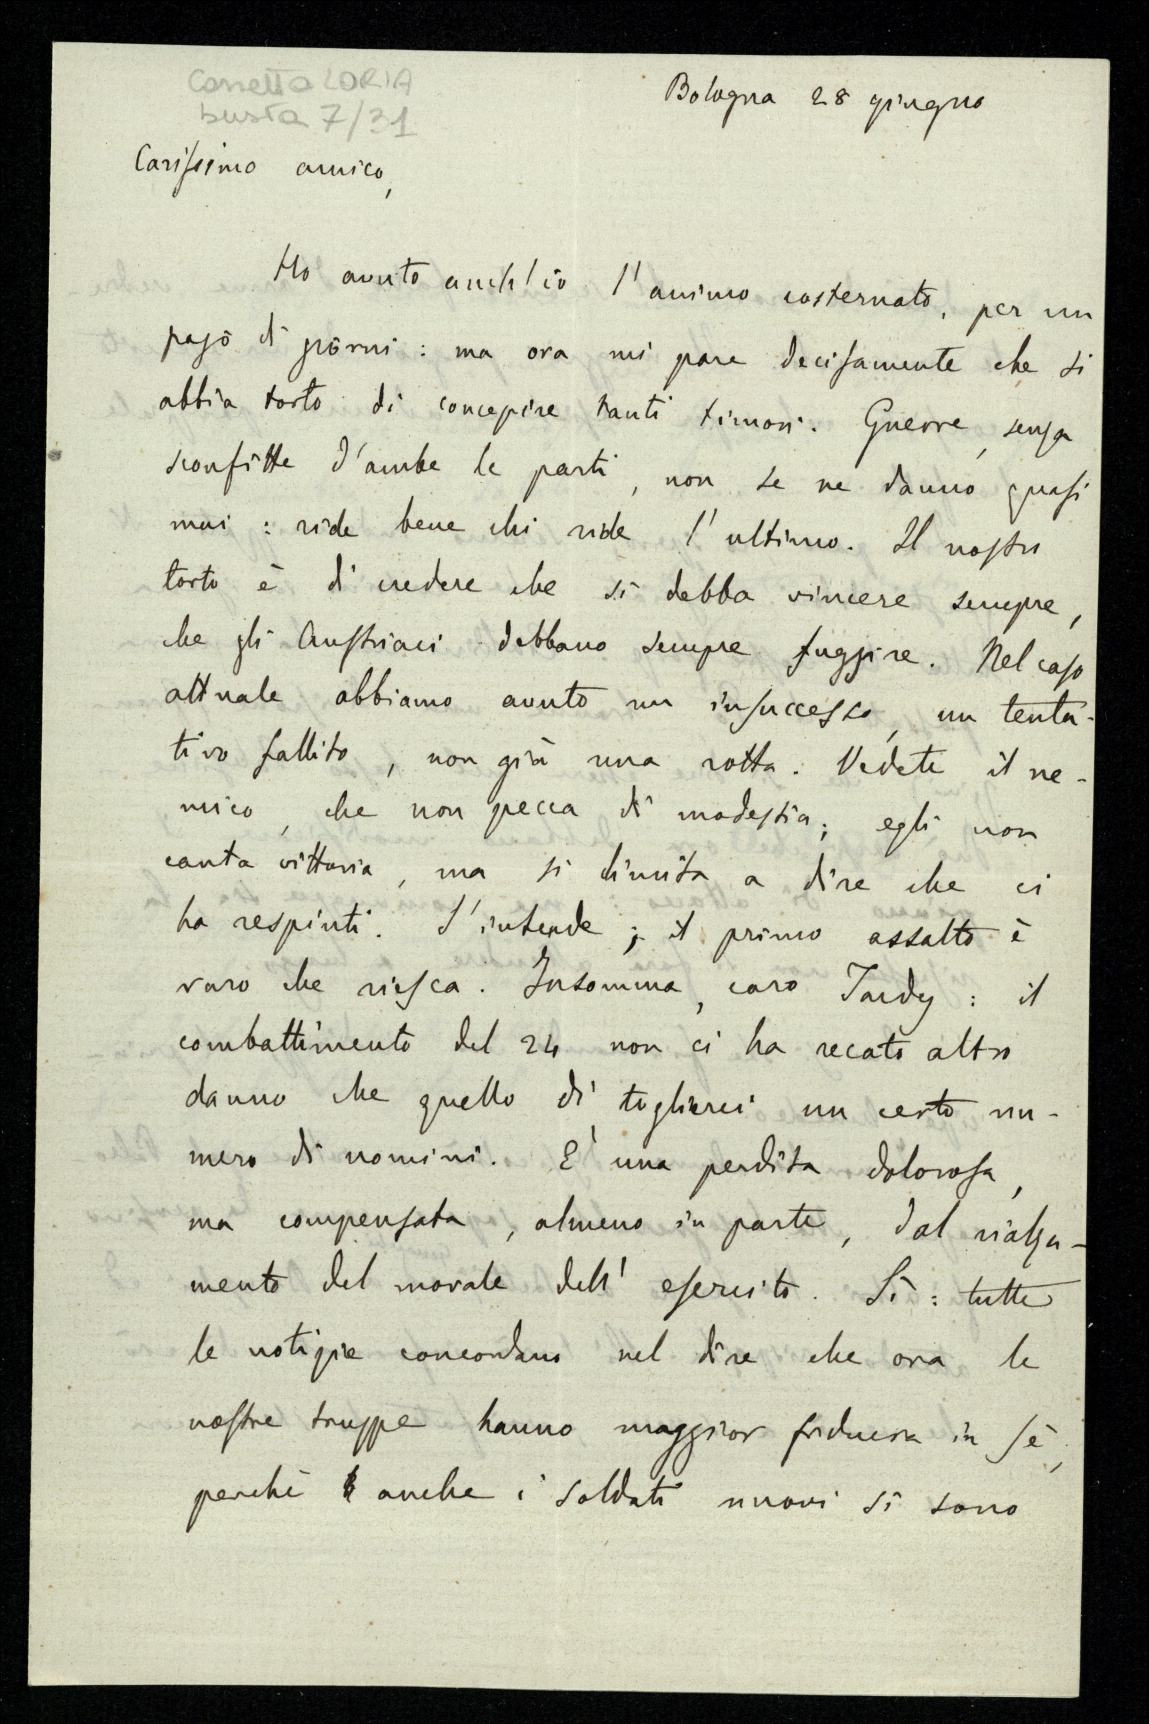 Cassetta LORIA
busta 7/31
Bologna 28 giugno
Carissimo amico,
Ho avuto anch'io l'animo costernato, per un
pajo di giorni: ma ora mi pare decisamente che si
abbia torto di concepire tanti timori. Guerre, senza
sconfitte d'ambe le parti, non se ne danno quasi
mai: ride bene chi ride l'ultimo. Il nostro
torto è di credere che si debba vincere sempre,
che gli Austriaci debbano sempre fuggire. Nel caso
attuale abbiamo avuto un insuccesso, un tenta-
tivo fallito, non già una rotta. Vedete il ne-
mico, che non pecca di modestia; egli non
canta vittoria, ma si limita a dire che ci
ha respinti. S'intende; il primo assalto è
raro che riesca. Insomma, caro Tardy: il
combattimento del 24 non ci ha recato altro
danno che quello di toglierci un certo nu-
mero di uomini. E' una perdita dolorosa,
ma compensata, almeno in parte, dal rialza-
mento del morale dell'esercito. Sì: tutte
le notizie concordano nel dire che ora le
nostre truppe hanno maggior fiducia in sé,
perché anche i soldati nuovi si sono